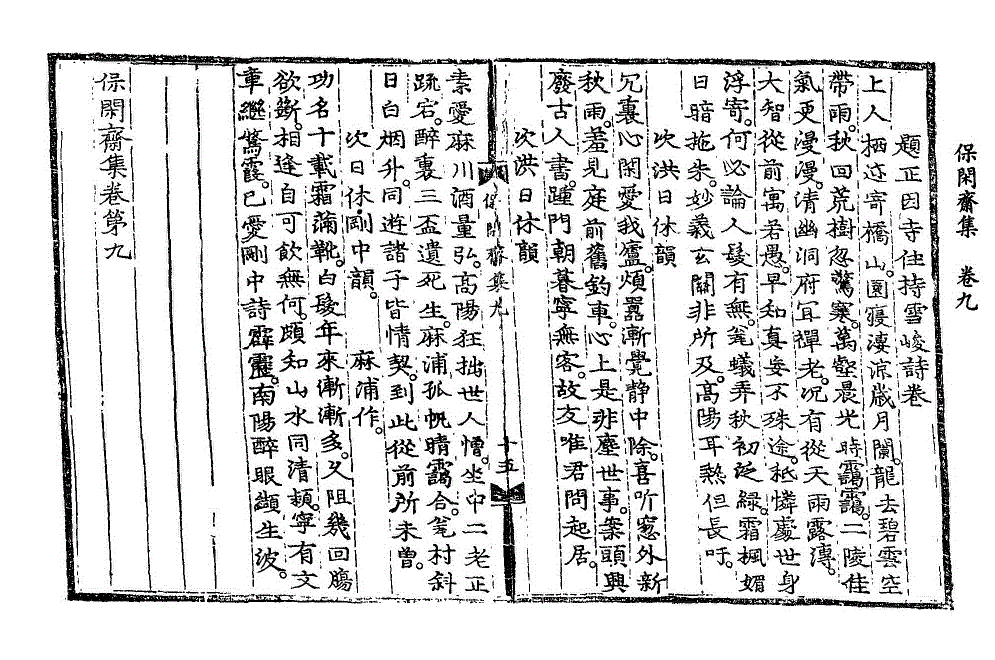 保閑齋集　卷九
題正因寺住持雪峻詩卷
上人栖迹寄橋山。園寢凄涼歲月闌。龍去碧雲空
帶雨。秋回荒樹忽驚寒。萬壑晨光時靄靄。二陵佳
氣更漫漫。清幽洞府冝禪老。况有從天雨露漙。
大智從前寓若愚。早知真妄不殊途。秪憐處世身
浮寄。何必論人髮有無。瓮蟻弄秋初泛綠。霜楓媚
日暗拖朱。妙義玄關非所及。高陽耳熱但長吁。
次洪日休韻
冗裏心閑愛我廬。煩囂漸覺静中除。喜听窓外新
秋雨。羞見庭前舊釣車。心上是非塵世事。案頭興
廢古人書。踵門朝暮寧無客。故友唯君問起居。
次洪日休韻
保閑齋集九
十五
素愛麻川酒量弘。高陽狂拙世人憎。坐中二老正
踈宕。醉裏三盃遺死生。麻浦孤帆晴靄合。瓮村斜
日白烟升。同遊諸子皆情契。到此從前所未曾。
次日休剛中韻。　麻浦作。
功名十載霜滿靴。白髮年來漸漸多。久阻幾回膓
欲斷。相逢自可飲無何。頗知山水同清潁。寧有文
章繼鶩霞。已愛剛中詩霹靂。南陽醉眼纈生波。
保閑齋集卷第九